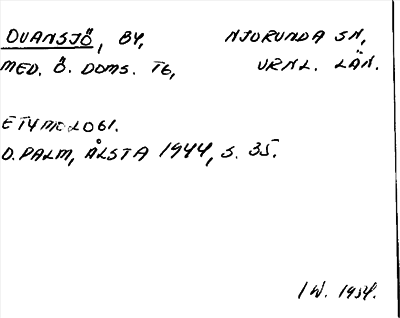 DVANSJÖ, BY, NJURUNDA SN,
MED. Ö. DOMS. TG, VRNL. LÄN.
ETYMOLOGI.
D. PALM, ÅLSTA 1944, S. 35.
IW. 1954.